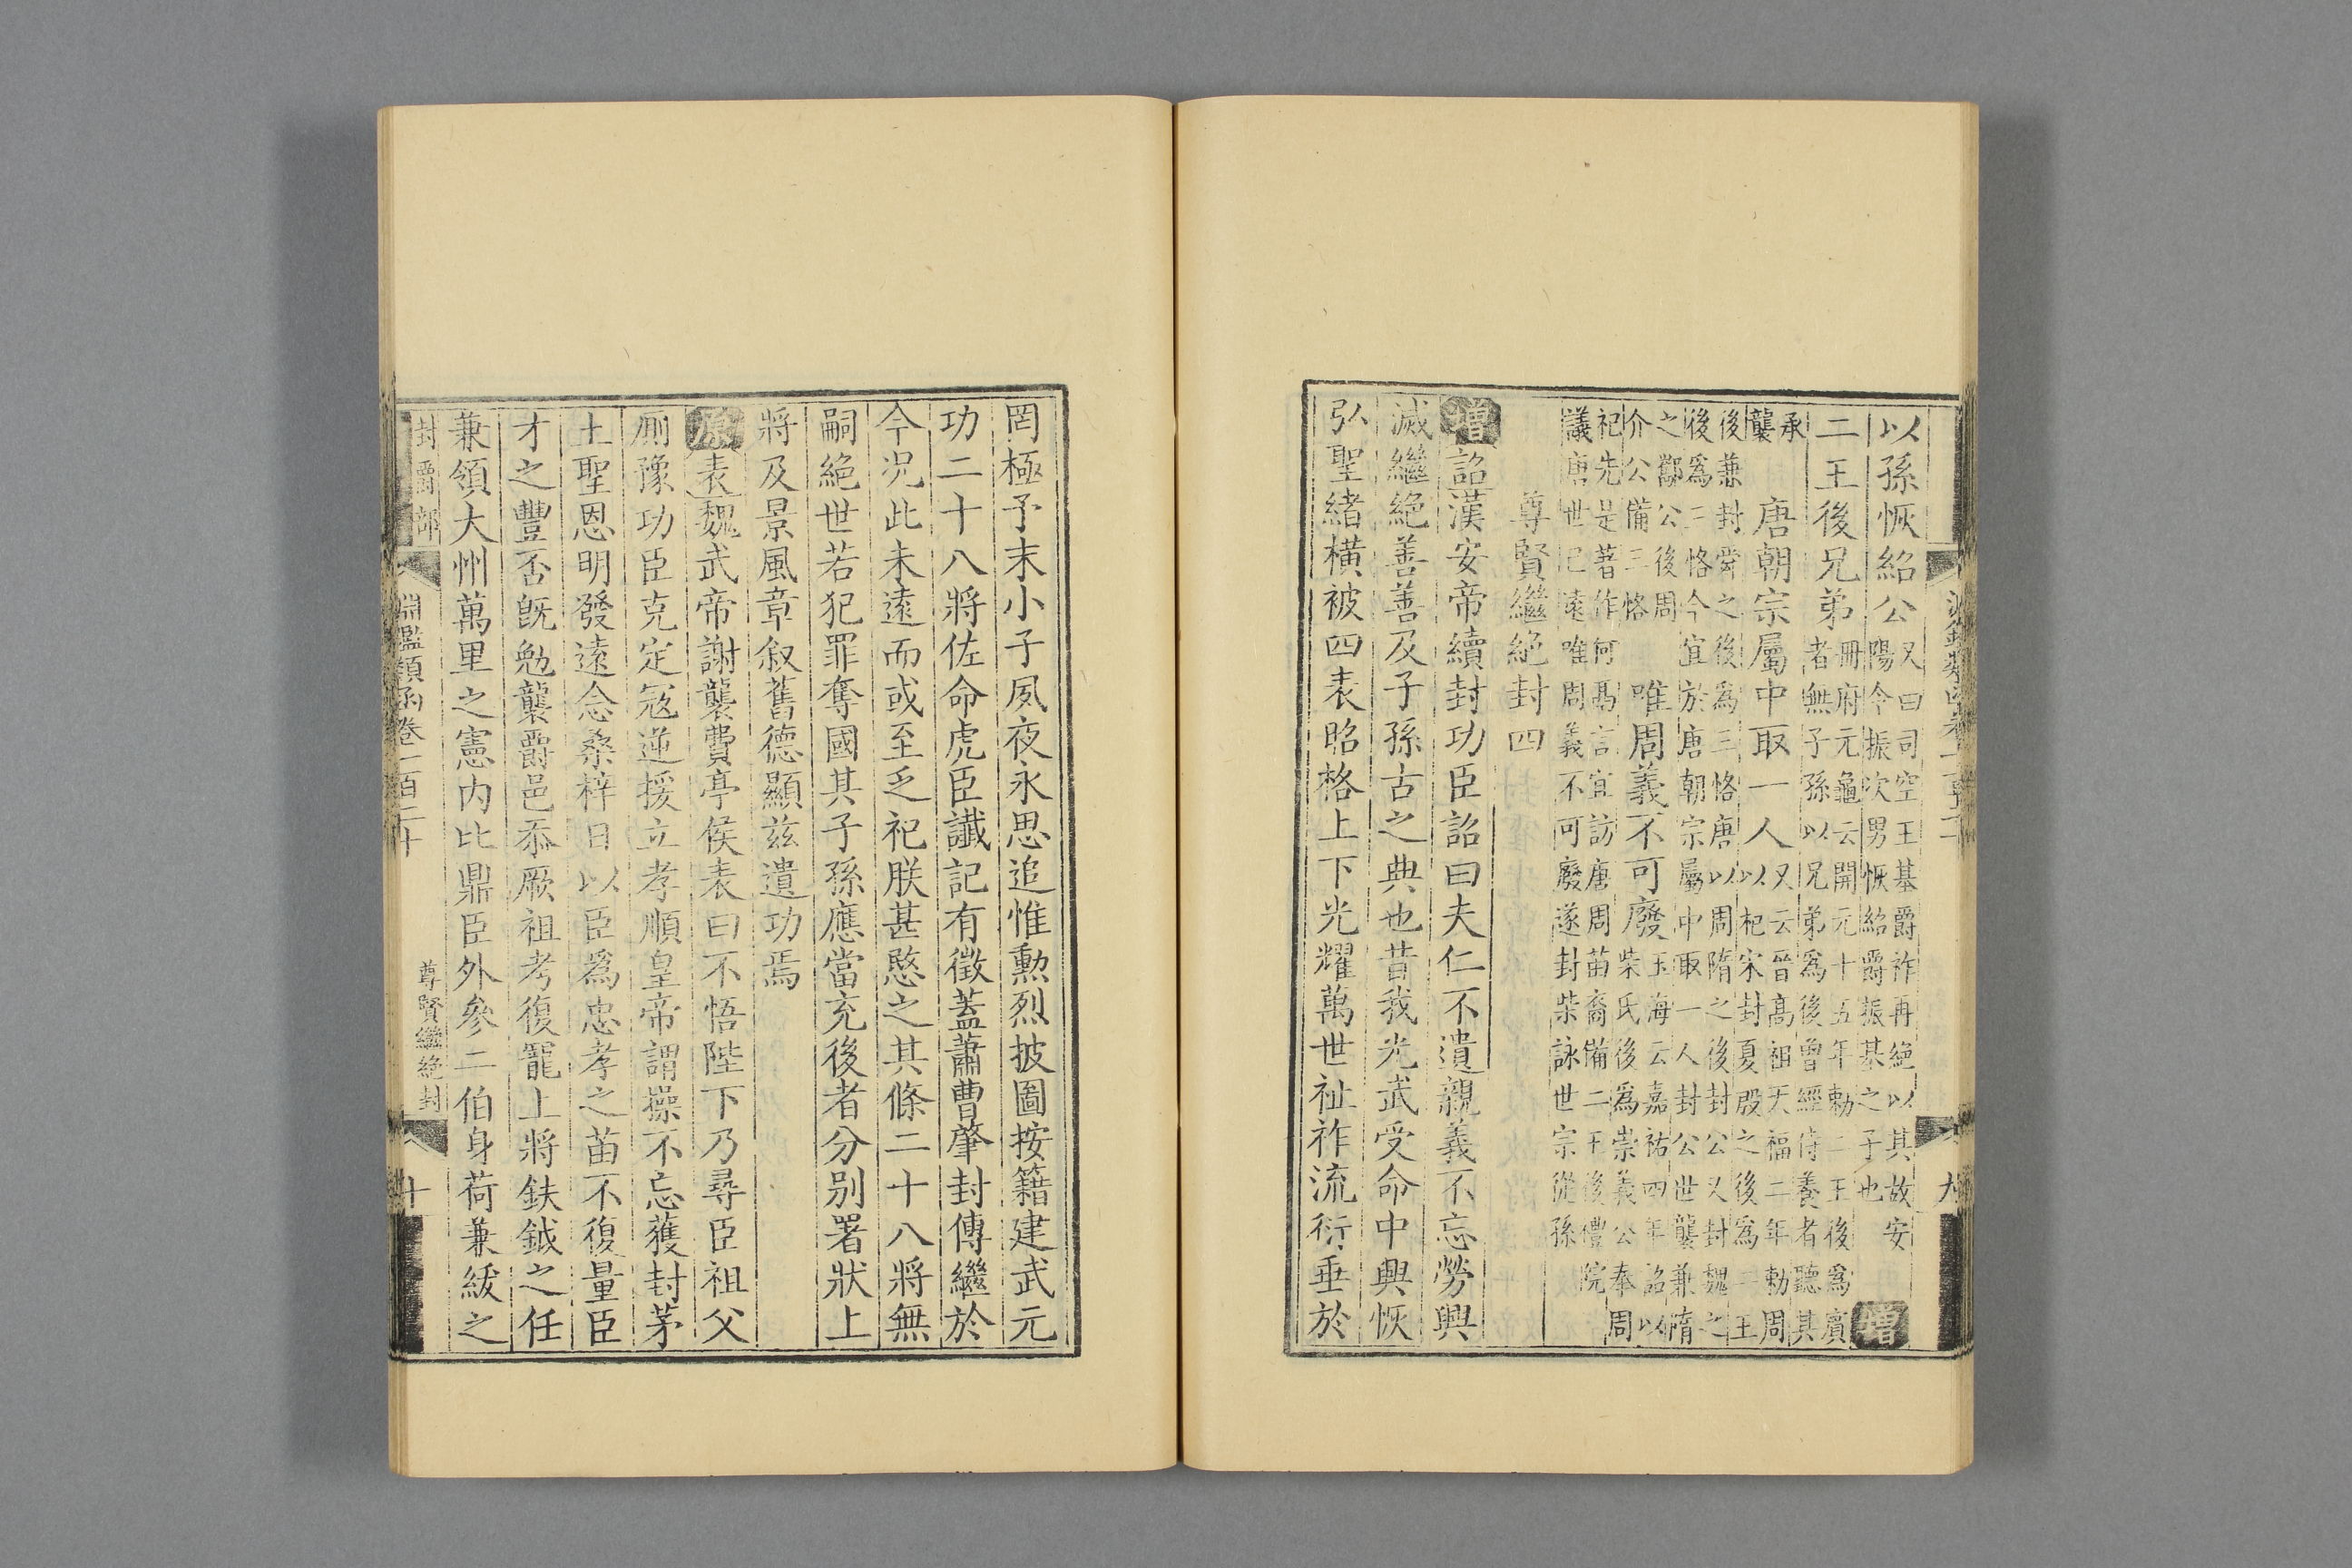 以孫恢紹公又曰司空王基爵祚再絕以其故安陽令振次男恢紹爵振基之子也增
二王後兄弟冊府元龜云開元十五年勅二王後為賓者無子孫以兄弟為後曾經侍養者聽其
承襲唐朝宗屬中取一人又云晉高祖天福二年勅周以杞宋封夏殷之後為二王
後兼封舜之後為三恪唐以周隋之後封公又封魏之後為三恪今宜於唐朝宗屬中取一人封公世襲兼隋
之酅公後周介公備三恪唯周義不可廢玉海云嘉祐四年詔以柴氏後為崇義公奉周
祀先是著作何鬲言宜訪唐周苗裔備二王後禮院議唐世已遠唯周義不可廢遂封柴詠世宗從孫
尊賢繼絕封四
增詔漢安帝續封功臣詔曰夫仁不遺親義不忘勞興
滅繼絕善善及子孫古之典也昔我光武受命中興恢
弘聖緒橫被四表昭格上下光耀萬世祉祚流衍垂於
罔極予末小子夙夜永思追惟勳烈披圖按籍建武元
功二十八將佐命虎臣讖記有徵蓋蕭曹肇封傳繼於
今況此未遠而或至乏祀朕甚愍之其條二十八將無
嗣絕世若犯罪奪國其子孫應當充後者分別署狀上
將及景風章叙舊德顯兹遺功焉
原表魏武帝謝襲費亭侯表曰不悟陛下乃尋臣祖父
厠豫功臣克定寇逆援立孝順皇帝謂操不忘獲封茅
土聖恩明發遠念桑梓日以臣為忠孝之苗不復量臣
才之豐否旣勉襲爵邑忝厥祖考復寵上將鈇鉞之任
兼領大州萬里之憲內比鼎臣外參二伯身荷兼紱之
封爵部 淵鑑類函卷一百二十 尊賢繼絕封 十